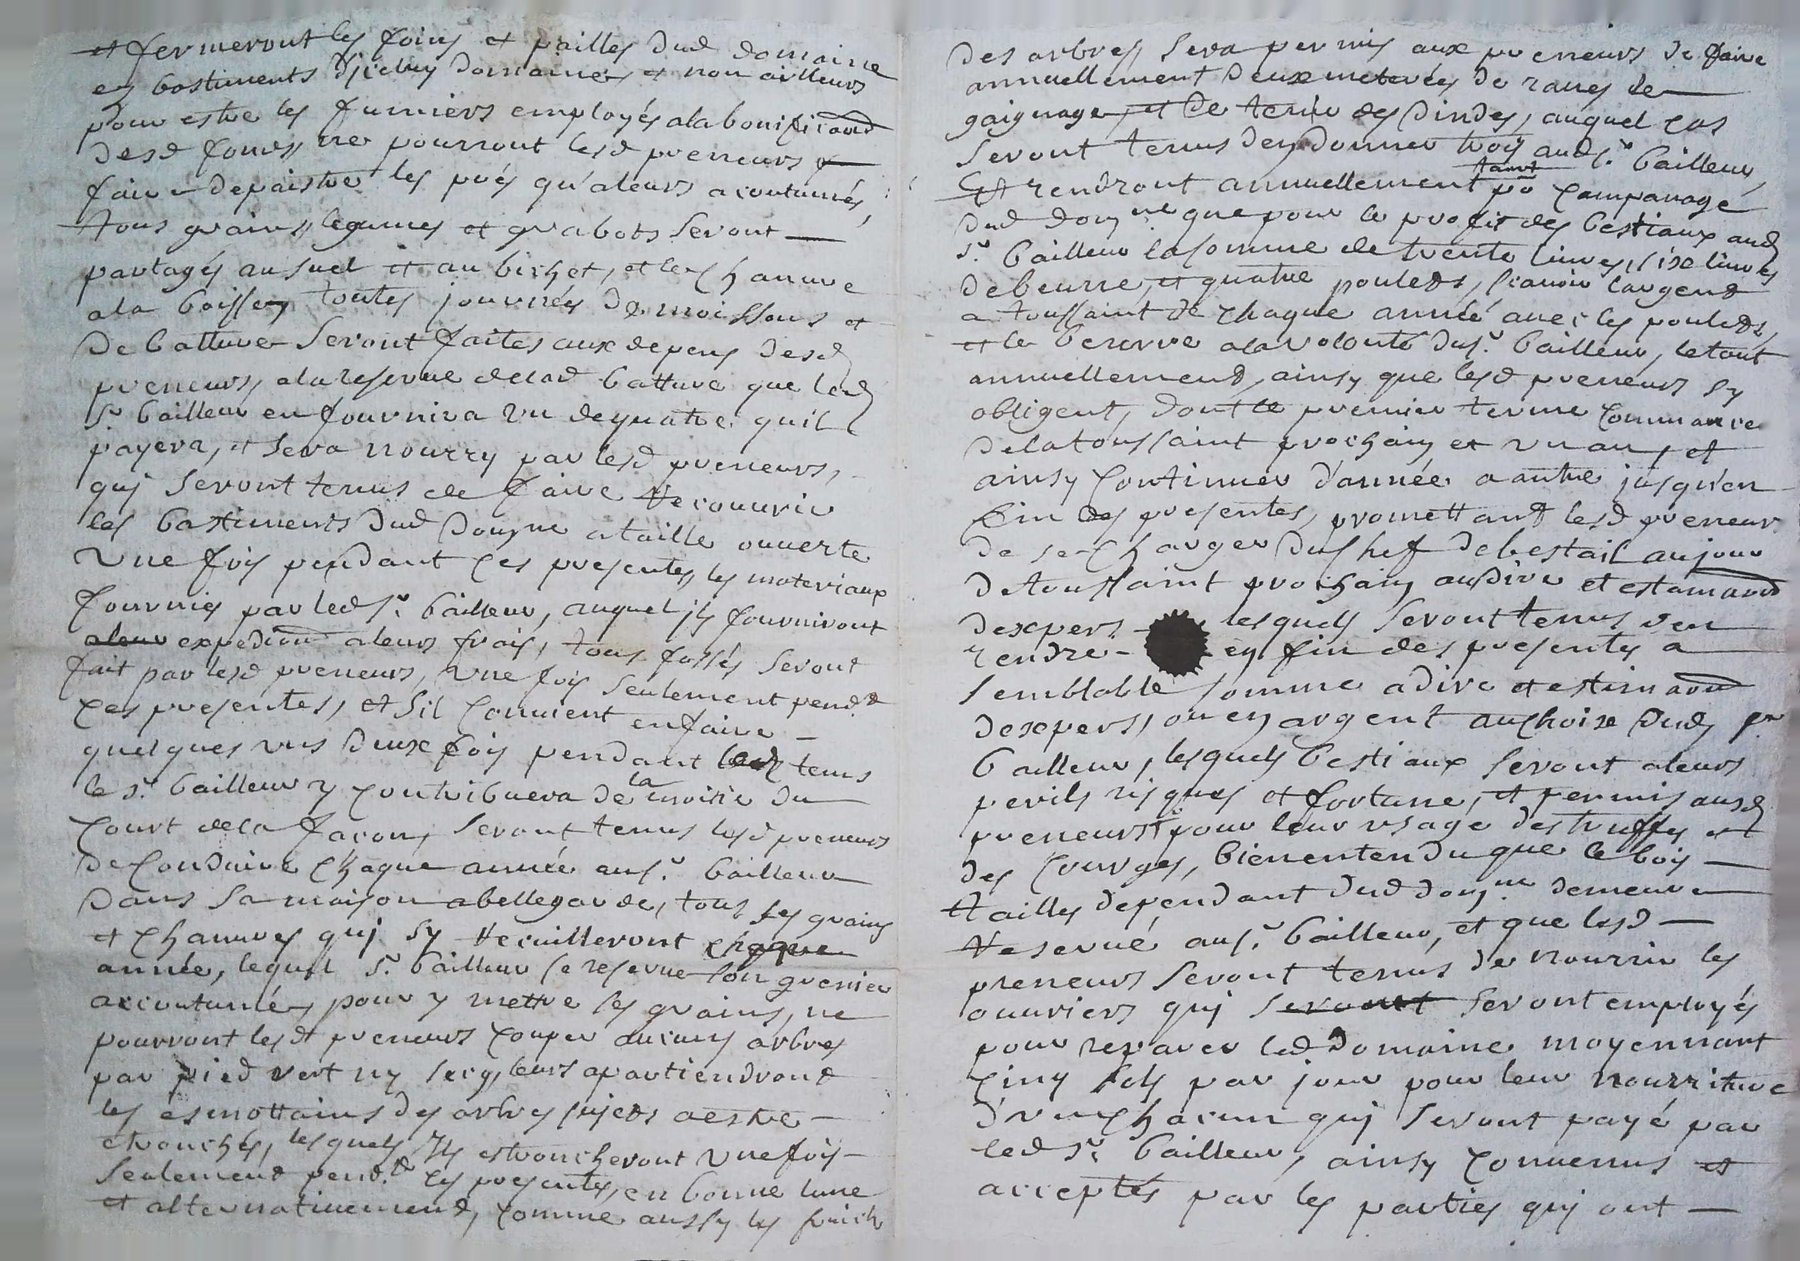 et fermeront les foins et pailles dud domaine
ez bastiments d'jceluy domaine et non ailleurs
pour estre les fumiers employés ala bonification
desd fonds, ne pourront lesd preneurs
faire depaistre les prés qu'aleurs acoutumés,
tous grains legumes et grabots seront
partagés au suel et au bichet, et le chanvre
ala boisse, toutes journées de moissons et
de batture seront faites aux depens desd
preneurs, ala reserve delad batture que led
sr bailleur en fournira un de quatre quil
payera, et sera nourry par lesd preneurs,
quj seront tenus de faire recouvrir
les bastiments dud domne ataille ouverte
une fois pendant ces presentes, les materiaux
fournies par led sr bailleur, auquel jls fourniront
aleur expedion aleurs frais, tous fossés seront
fait par lesd preneurs, une fois seulement pendt
ces presentes, et sil convient en faire
quelques uns deux fois pendant led tems
le sr bailleur y contribuera de la moitié du
court dela facon, seront tenus lesd preneurs
de conduire chaque année ausr bailleur
dans sa maison abellegarde, tous les grains
et chanvres quj sy recuilleront chaque
année, lequel sr bailleur se reserve son grenier
accoutumé, pour y mettre les grains, ne
pourront lesdt preneurs couper aucuns arbres
par pied vert ny secq, leurs apartiendront
les esmottains des arbres sujets aestre
etronchés, lesquels jls estroncheront une fois
seulement pendt ces presentes, en bonne lune
et alternativement, comme aussy les fruicts
des arbres, sera permis aux preneurs de faire
annuellement deux meterées de raves de
gaignage, et de tenir des dindes, auquel cas
seront tenus den donner trois audt sr bailleur,
Et rendront annuellement tant po campanage
dud domne que pour le profit des bestiaux aud
sr bailleur la somme de trente livres, six livres
de beurre, et quatre poulets, scavoir l'argent
a toussaint de chaque année avec les poulets,
et le beurre ala volonté dusr bailleur, letout
annuellement, ainsy que lesd preneurs sy
obligent, dont le premier terme commance
dela toussaint prochain en un an, et
ainsy continuer d'année a autre jusqu'en
fin des presentes, promettant lesd preneurs
de se charger du chef debestail aujour
de toussaint prochain au dire et estimation
dexpers lesquels seront tenus d'en
rendre en fin des presentes a
semblable somme adire et estimation
dexpers, ou en argent auchoix dud sr
bailleur, lesquels bestiaux seront aleurs
perils risques et fortune, et permis ausd
preneurs pour leur usage des truffes et
des courges, bien entendu que le bois
taillis dependant dud domne demeure
reservé ausr bailleur, et que lesd
preneurs seront tenus de nourrir les
ouvriers quj seront seront employés
pour reparer led domaine moyennant
cinq sols par jour pour leur nourriture
d'un chacun quj seront payé par
led sr bailleur, ainsy convenus et
acceptés par les parties quj ont